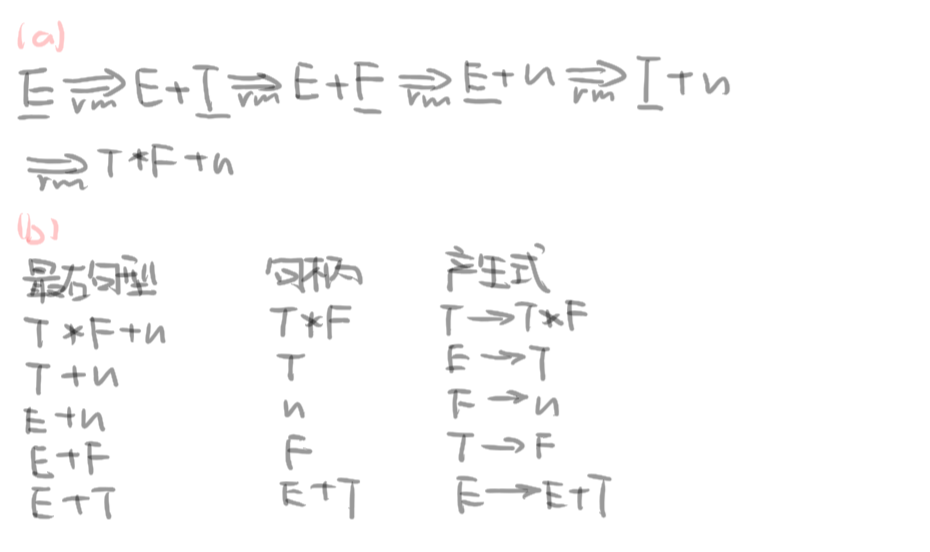 (a)
E ⇒rm E+T ⇒rm E+F ⇒rm E+n ⇒rm T+n
⇒rm T*F+n
(b)
最右句型 句柄 产生式
T*F+n T*F T→T*F
T+n T E→T
E+n n F→n
E+F F T→F
E+T E+T E→E+T